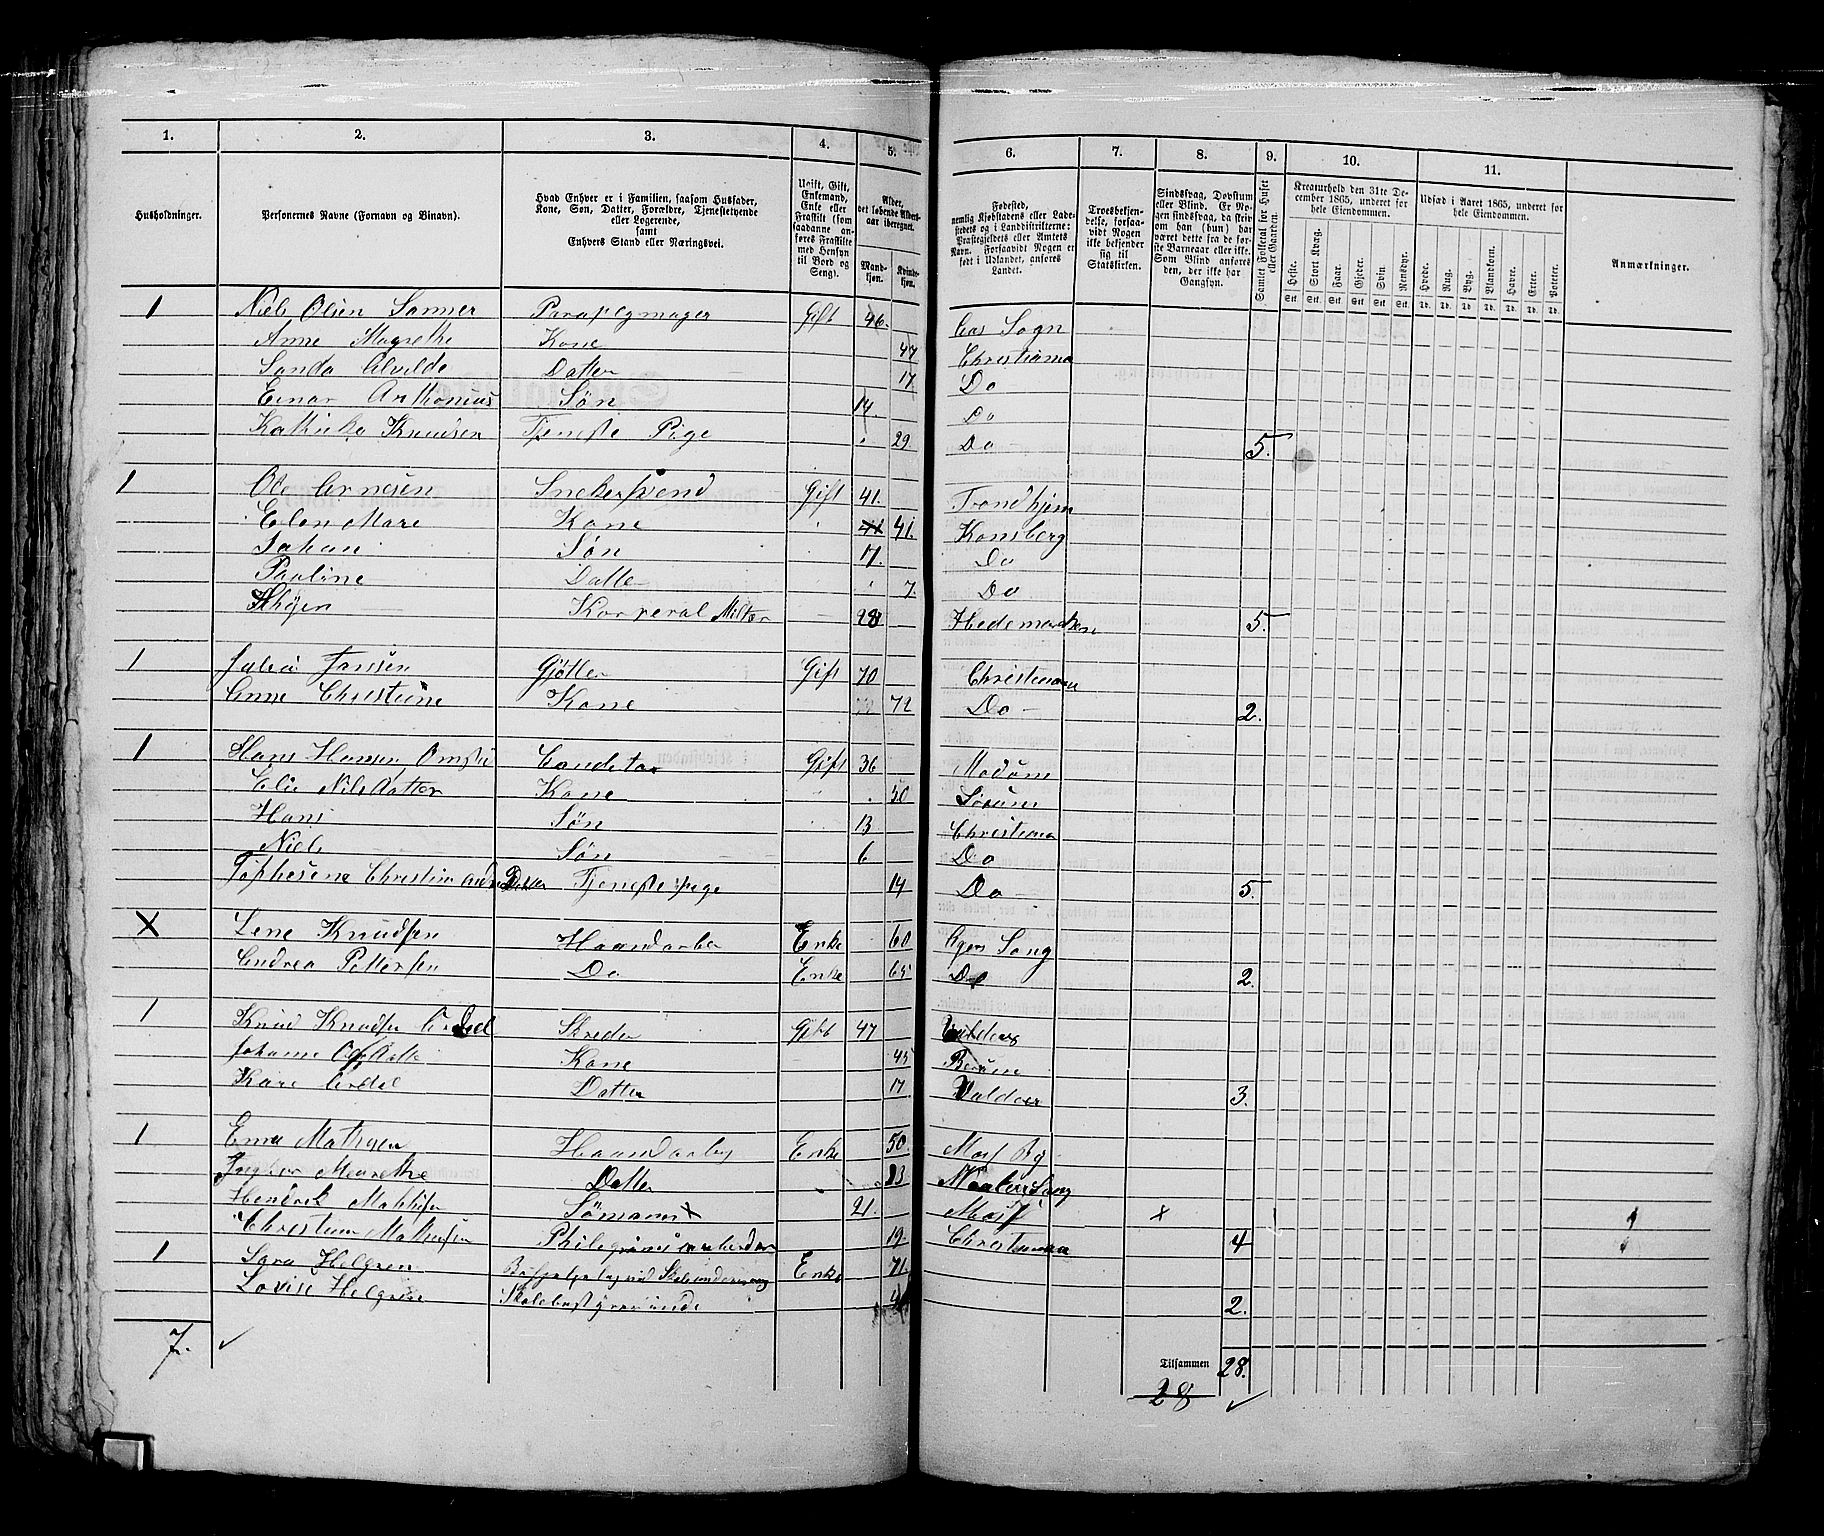 1. 2. 3. 4. 5. 6. 7. 8. 9. 10. 11.
Husholdninger.
Personernes Navne (Fornavn og Binavn).
Hvad Enhver er i Familien, saasom Husfader,
Kone, Søn, Datter, Forældre, Tjenestetyende
eller Logerende,
samt
Enhvers Stand eller Næringsvei.
Ugift, Gift,
Enkemand,
Enke eller
Fraskilt (som
saadanne an-
føres Fraskilte
med Hensyn
til Bord og
Seng).
Alder,
det løbende Alders-
aar iberegnet.
Mand-
kjøn.
Kvinde-
kjøn.
Fødested,
nemlig Kjøbstadens eller Lade-
stedets og i Landdistrikterne:
Præstegjeldets eller Amtets
Navn. Forsaavidt Nogen er
født i Udlandet, anføres
Landet.
Troesbekjen-
delse, forsaa-
vidt Nogen
ikke bekjender
sig til
Statskirken.
Sindssvag, Døvstum
eller Blind. Er No-
gen sindssvag, da skriv
om han (hun) har
været dette fra de før-
ste Barneaar eller ikke.
Som Blind anføres
den, der ikke har
Gangsyn.
Samlet Folketal for Huset
eller Gaarden.
Kreaturhold den 31te De-
cember 1865, underet for
hele Eiendommen.
Heste. Stort Kvæg. Faar. Gjeder. Svin. Rensdyr.
Stk. Stk. Stk. Stk. Stk. Stk.
Udsæd i Aaret 1865, underet for
hele Eiendommen.
Hvede. Rug. Byg. Blandkorn. Havre. Erter. Poteter.
Td. Td. Td. Td. Td. Td. Td.
Anmærkninger.
1 Niels Olsen Sanner Parapegmager Gift 46. Aas Sogn
Anne Magrethe Kone 47 Christiania
Alvilde Datter 17. Do
Einar Anthonius Søn 14. Do
Kathinka Knudsen Tjeneste Pige 29. Do 5.
1 Ole Arnesen Snekersvend Gift 41. Trondhjem
Elen Mare Kone 41. Konsberg
Johan Søn 17. Do
Pauline Datte 7. Do
Korperal 28 Hedemarken 5.
1 Jansen Gjøtler Gift 70 Christiania
Anne Christine Kone 72 Do 2.
1 Hans Hansen Gift 36 Modum
Elie Nilsdatter Kone 50 Sørum
Hans Søn 13 Christiania
Niels Søn 6 Do
Christine Tjenestepige 14 Do 5.
X Lene Knudsen Haandarbe Enke 60 Agers Song
Andrea Pettersen Do Enke 65 Do 2.
1 Knud Knudsen Skreder Gift 47 Valders
Johanne Kone 45 Berum
Kari Datter 17 Valders 3.
1 Mathisen Haandarbej Enke 50. Mos By
Marethe Datter 23
Hendrik Mathisen Sømann X 21. Mos X
Christian Mathisen 19. Christiania 4
1 Sara Helgren Enke 71.
Lovise Helgren Skolebestyrerinde 2.
7. ✓
Tilsammen 28.
28 ✓